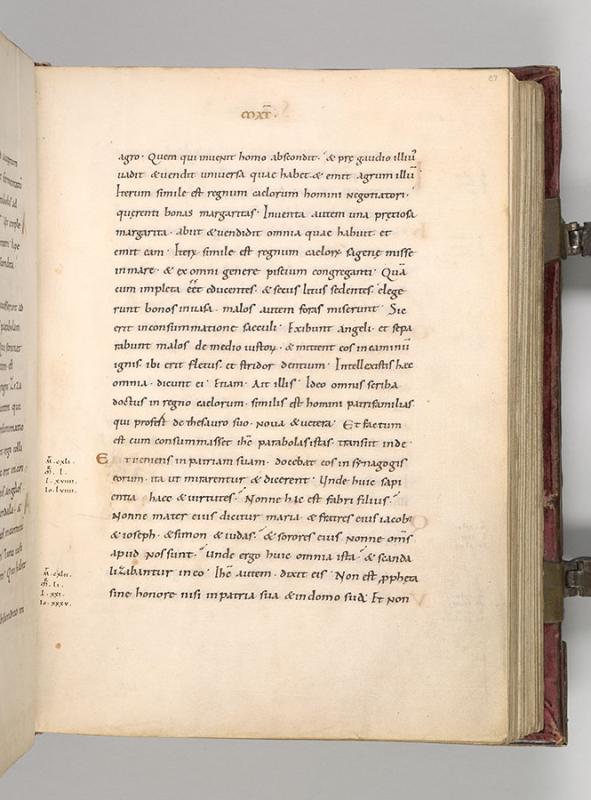 87
MXT̄.
agro · Quem qui inuenit homo abscondit · & prę gaudio illiuˀ
uadit & uendit uniuersa quae habet · & emit agrum illū
Iterum simile est regnum caelorum homini negotiatori ·
querenti bonas margaritas · Inuenta autem una pretiosa
margarita · abiit & uendidit omnia quae habuit · et
emit eam · Iterꝝ simile est regnum caeloꝝ sagenę missę
in mare · & ex omni genere piscium congreganti · Quā
cum impleta eēt educentes · & secus litus sedentes · elege
runt bonos in uasa · malos autem foras miserunt · Sic
erit in consummatione saeculi · Exibunt angeli · et sepa
rabunt malos de medio iustoꝝ · & mittent eos in caminū
ignis · ibi erit fletus · et stridor dentium · Intellexistis haec
omnia · dicunt ei · Etiam · Ait illis · Ideo omnis scriba
doctus in regno caelorum · similis est homini patrifamilias ·
qui profert de thesauro suo · noua & uetera · Et factum
est cum consummasset ihē parabolas istas · transiit inde
Et ueniens in patriam suam · docebat eos in synagogis
eorum · ita ut mirarentur & dicerent · Unde huic sapi
entia haec & uirtutes · Nonne hic est fabri filius ·
Nonne mater eius dicitur maria · & fratres eius iacobˀ
& ioseph · & simon & iudas · & sorores eius nonne om̄s
apud nos sunt · Unde ergo huic omnia ista · & scanda
lizabantur in eo · Ihē autem · dixit eis · Non est ꝓpheta
sine honore nisi in patria sua & in domo sua · Et non
m̄. cxli.
m̄. l.
l. xviiii.
io. lviiii.
m̄. cxlii.
m̄. li.
l. xxi.
io. xxxv.